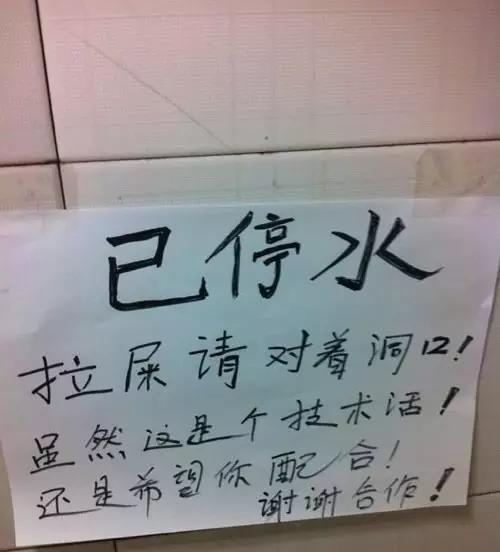 已停水
拉屎请对着洞口！
虽然这是个技术活！
还是希望你配合！
谢谢合作！